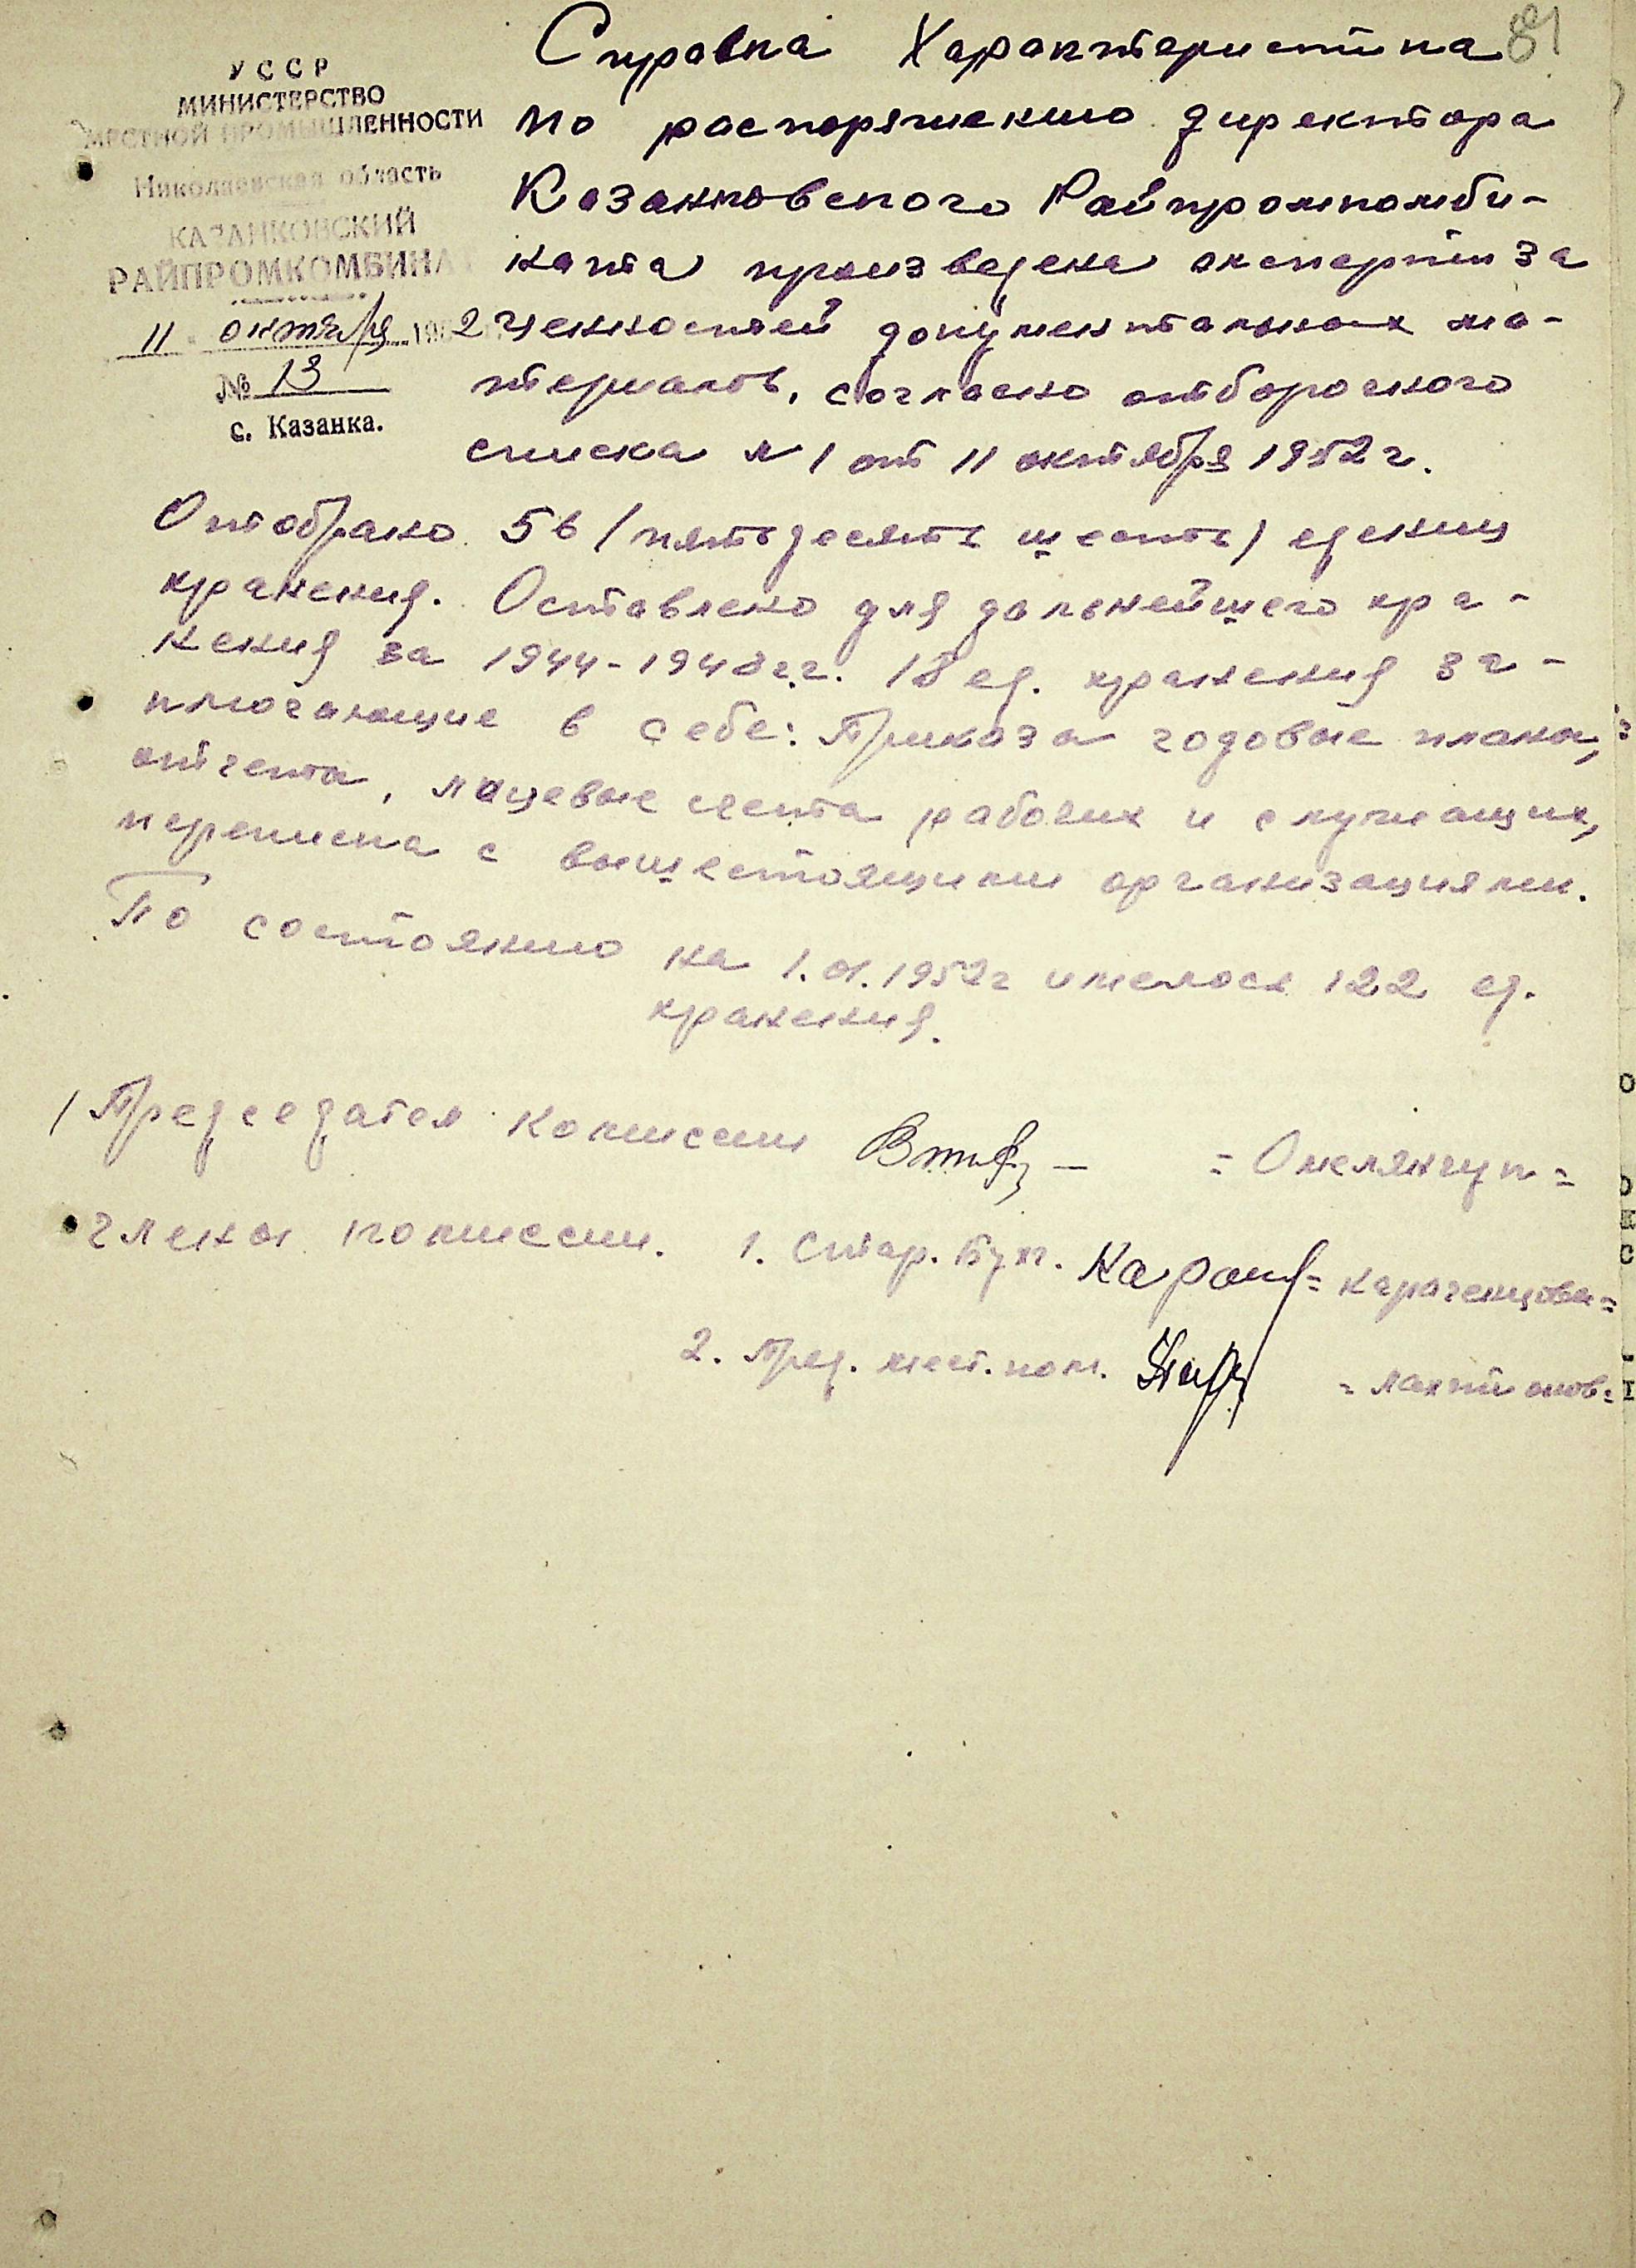 81
УССР
МИНИСТЕРСТВО
МЕСТНОЙ ПРОМЫШЛЕННОСТИ
Николаевская область
КАЗАНКОВСКИЙ
РАЙПРОМКОМБИНАТ
11 октября 1952
№ 13
с. Казанка.
Справка Характеристика
по распоряжению директора
Казанковского Райпромкомби-
ната произведена экспертиза
ценностей документальных ма-
териалов, согласно отборочного
списка № 1 от 11 октября 1952 г.
Отобрано 56 (пятьдесят шесть) едениц
хранения. Оставлено для дальнейшего хра-
нения за 1944-1948 г.г. 18 ед. хранения за-
ключающие в себе: Приказа годовые планы,
отчета, лицевые счета рабочих и служащих,
переписка с вышестоящими организациями.
По состоянию на 1.01.1952г имелось 122 ед.
хранения.
Председател Комиссии = Омелянчук =
члены комиссии. 1. Стар. Бух. = Караченцова =
2. Пред. мест. ком. = Лактионов =